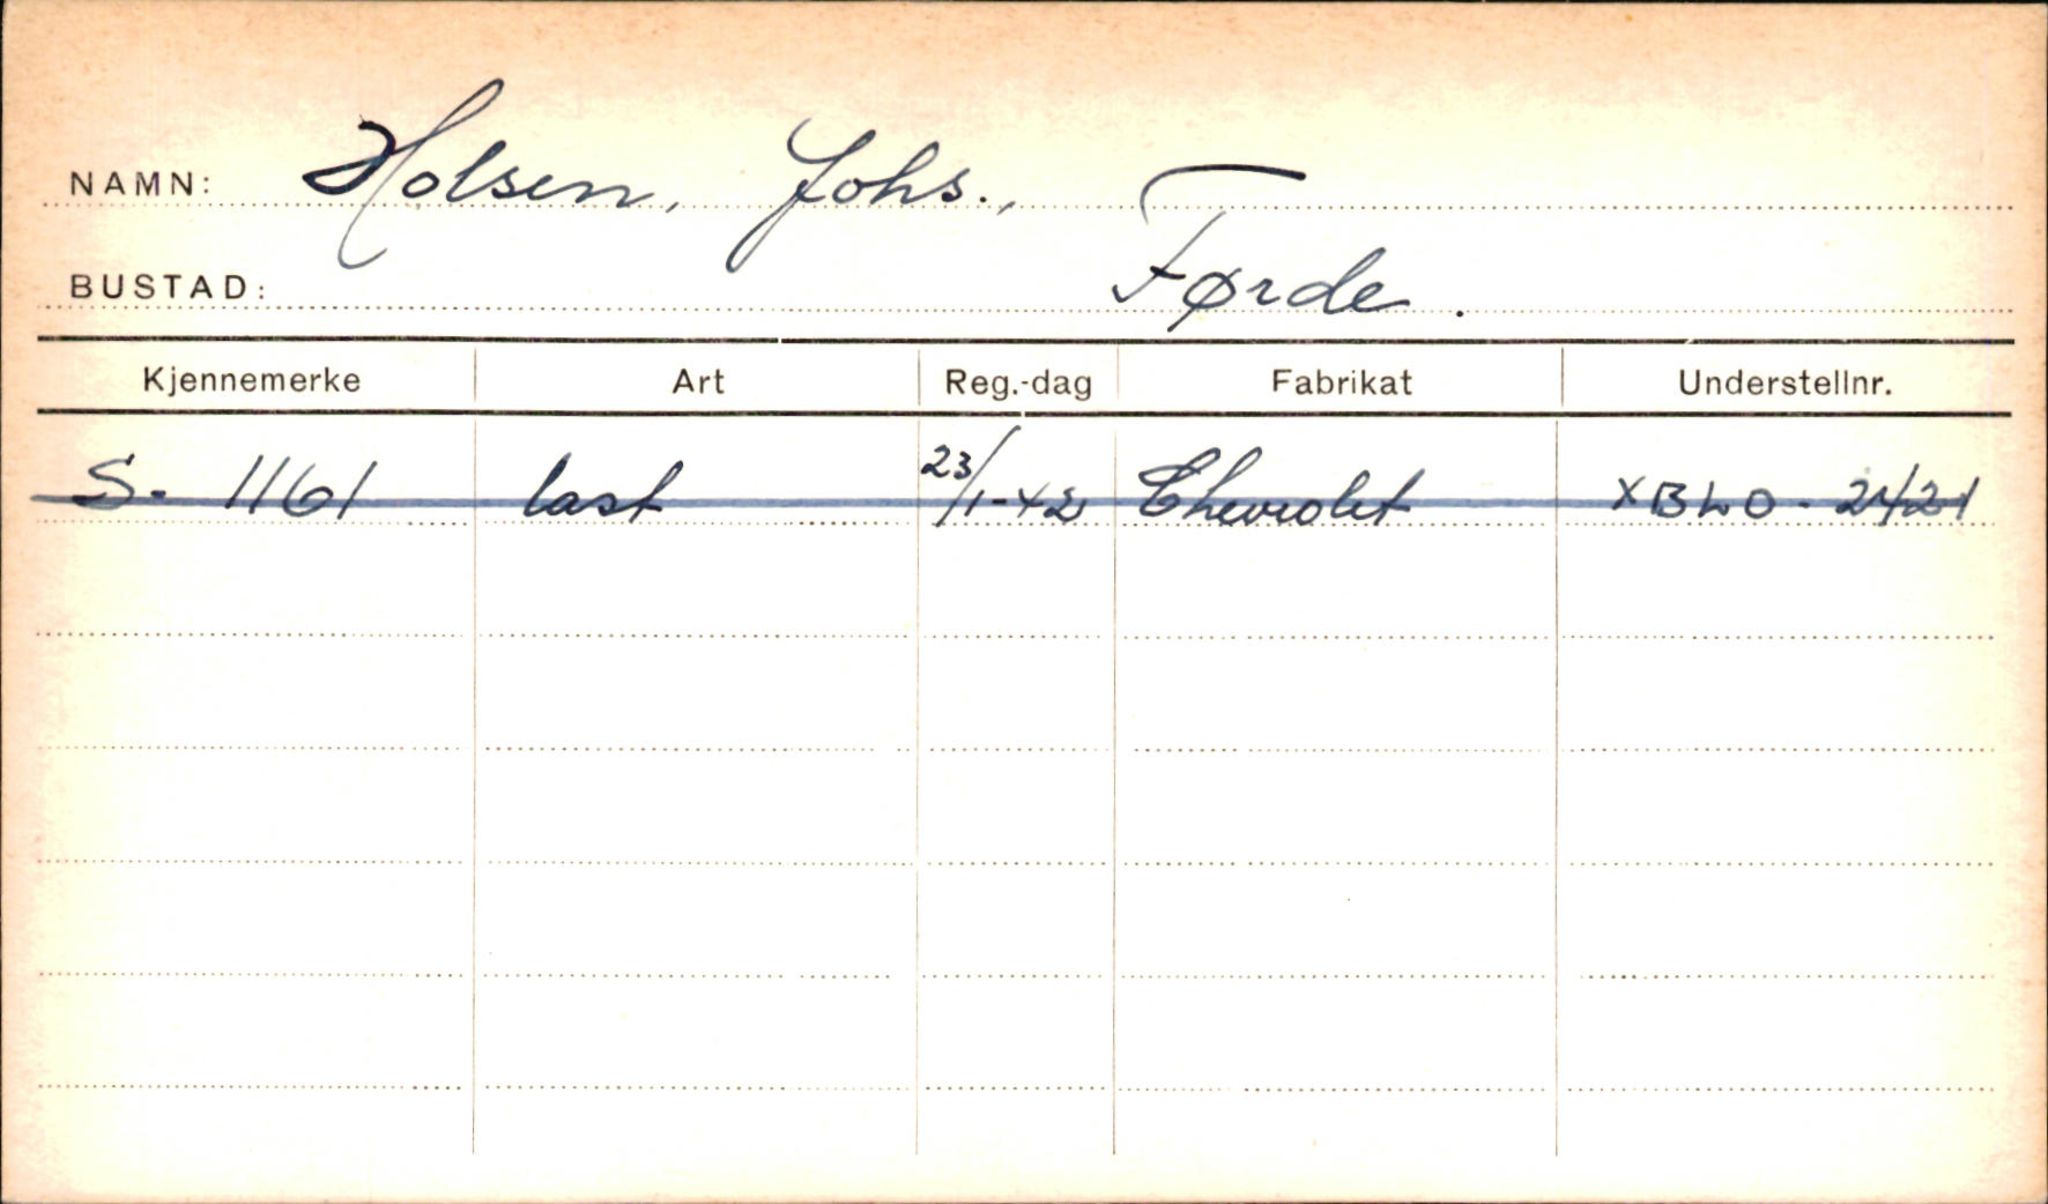 NAMN: Holsen, Johs.,
BUSTAD: Førde.
Kjennemerke Art Reg.-dag Fabrikat Understellnr.
S- 1161 last 23/1-42 Chevrolet XBLO-2421